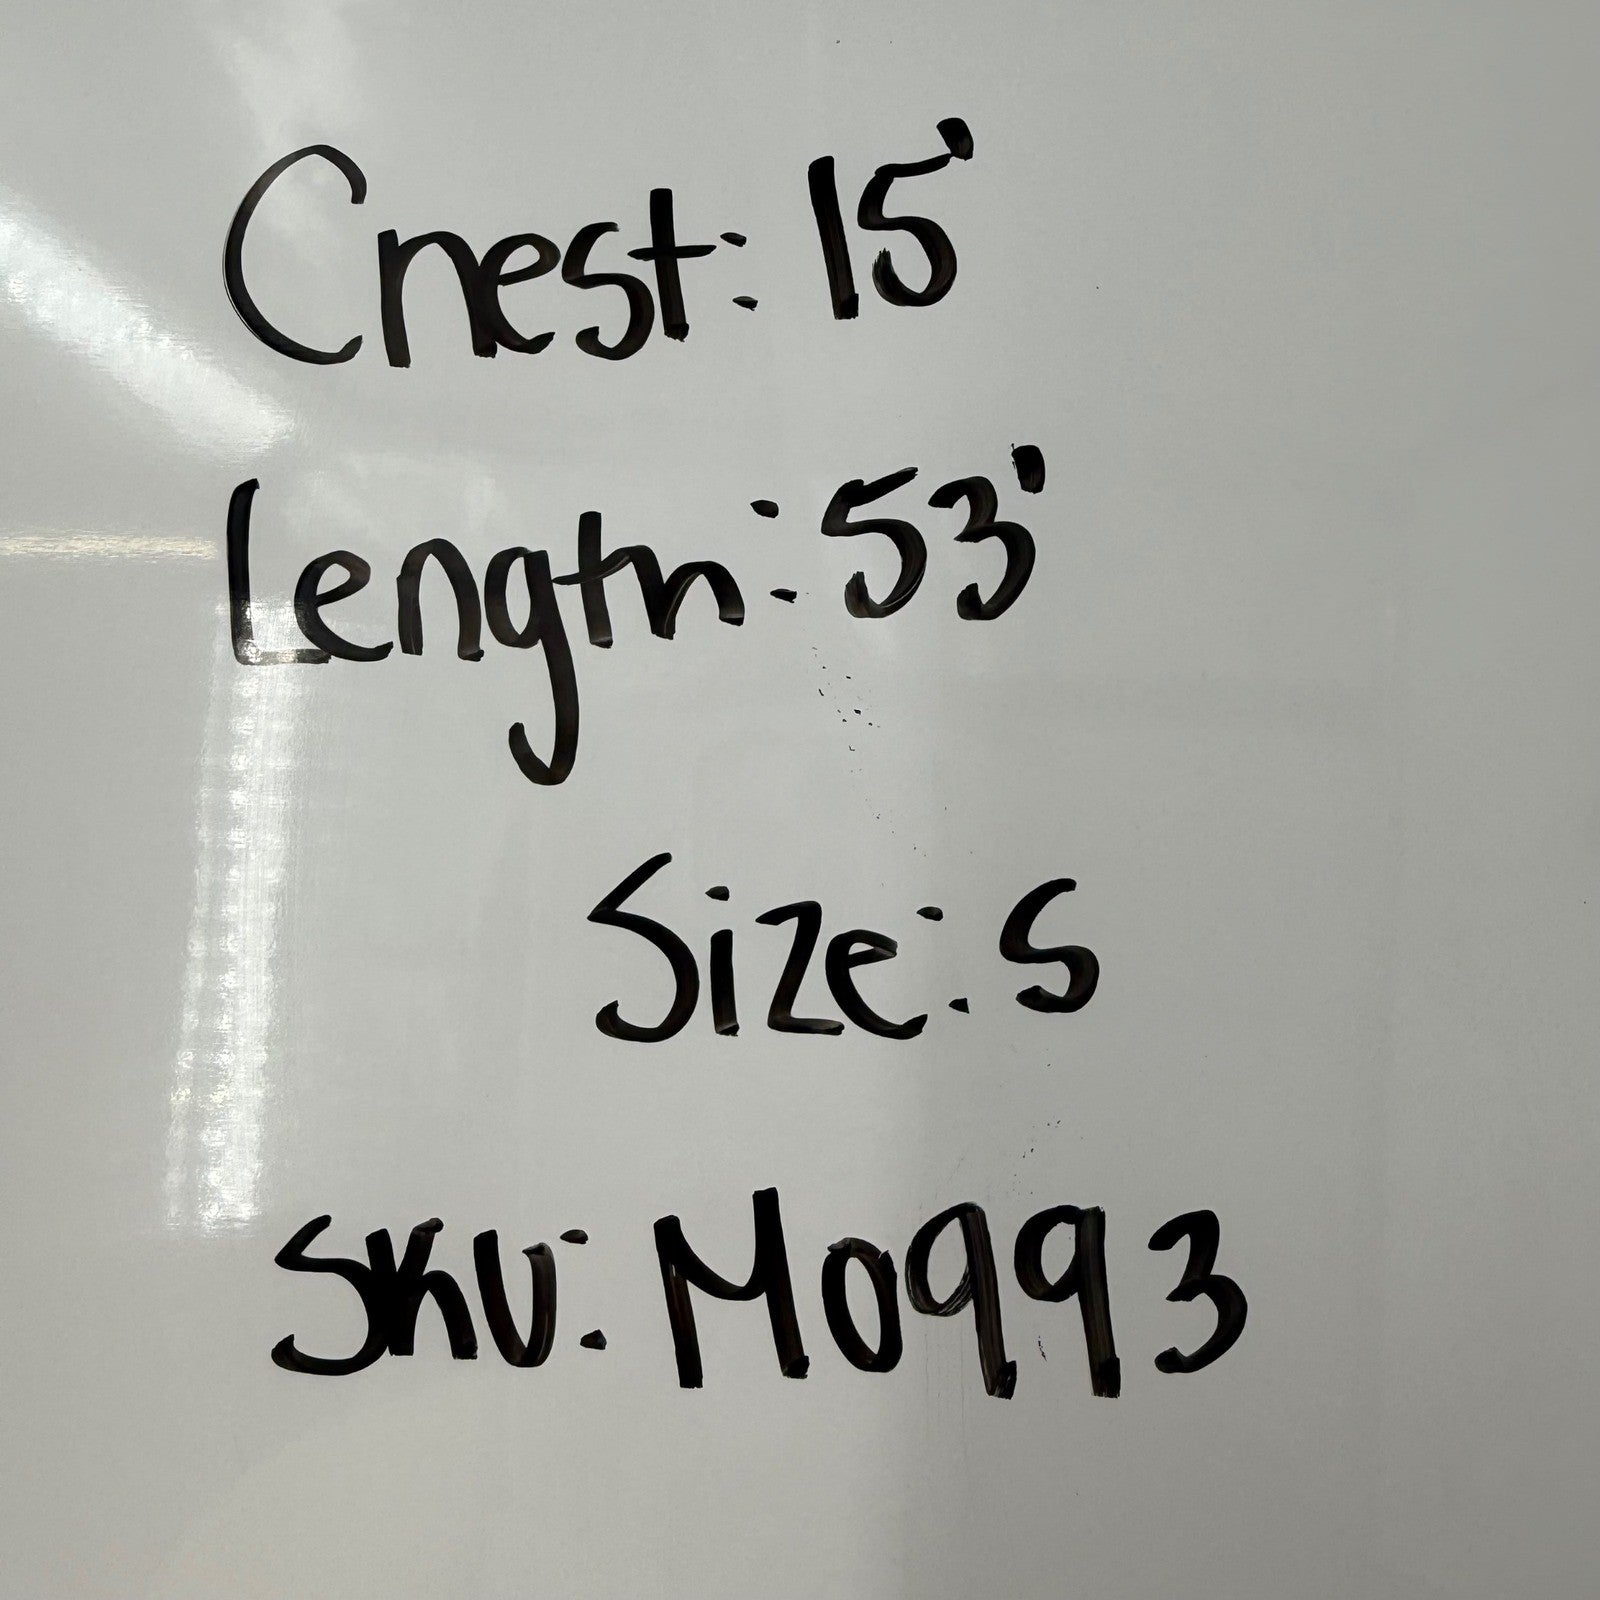 Chest: 15'
Length: 53'
Size: S
SKU: M0993